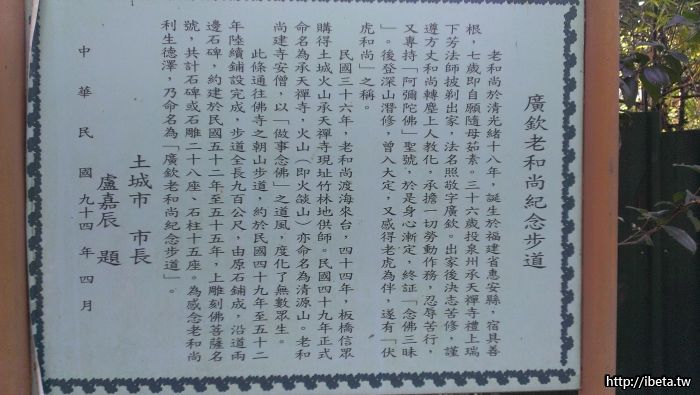 廣欽老和尚紀念步道
老和尚於清光緒十八年，誕生於福建省惠安縣，宿具善
根，七歲即自願隨母茹素。三十六歲投泉州承天禪寺禮上瑞
下芳法師披剃出家，法名照敬字廣欽。出家後決志苦修，謹
遵方丈和尚轉塵上人教化，承擔一切勞動作務，忍辱苦行，
又專持「阿彌陀佛」聖號，於是身心漸定，終証「念佛三昧
」。後登深山潛修，曾入大定，又感得老虎為伴，遂有「伏
虎和尚」之稱。
民國三十六年，老和尚渡海來台，四十四年，板橋信眾
購得土城火山承天禪寺現址竹林地供師。民國四十九年正式
命名為承天禪寺，火山（即火燄山）亦命名為清源山。老和
尚建寺安僧，以「做事念佛」之道風，度化了無數眾生。
此條通往佛寺之朝山步道，約於民國四十九年至五十二
年陸續鋪設完成，步道全長九百公尺，由原石鋪成，沿道兩
邊石碑，約建於民國五十二年至五十五年，上雕刻佛菩薩名
號，共計石碑或石雕二十八座、石柱十五座。為感念老和尚
利生德澤，乃命名為「廣欽老和尚紀念步道」。
土城市 市長
盧嘉辰 題
中華民國九十四年四月
http://ibeta.tw